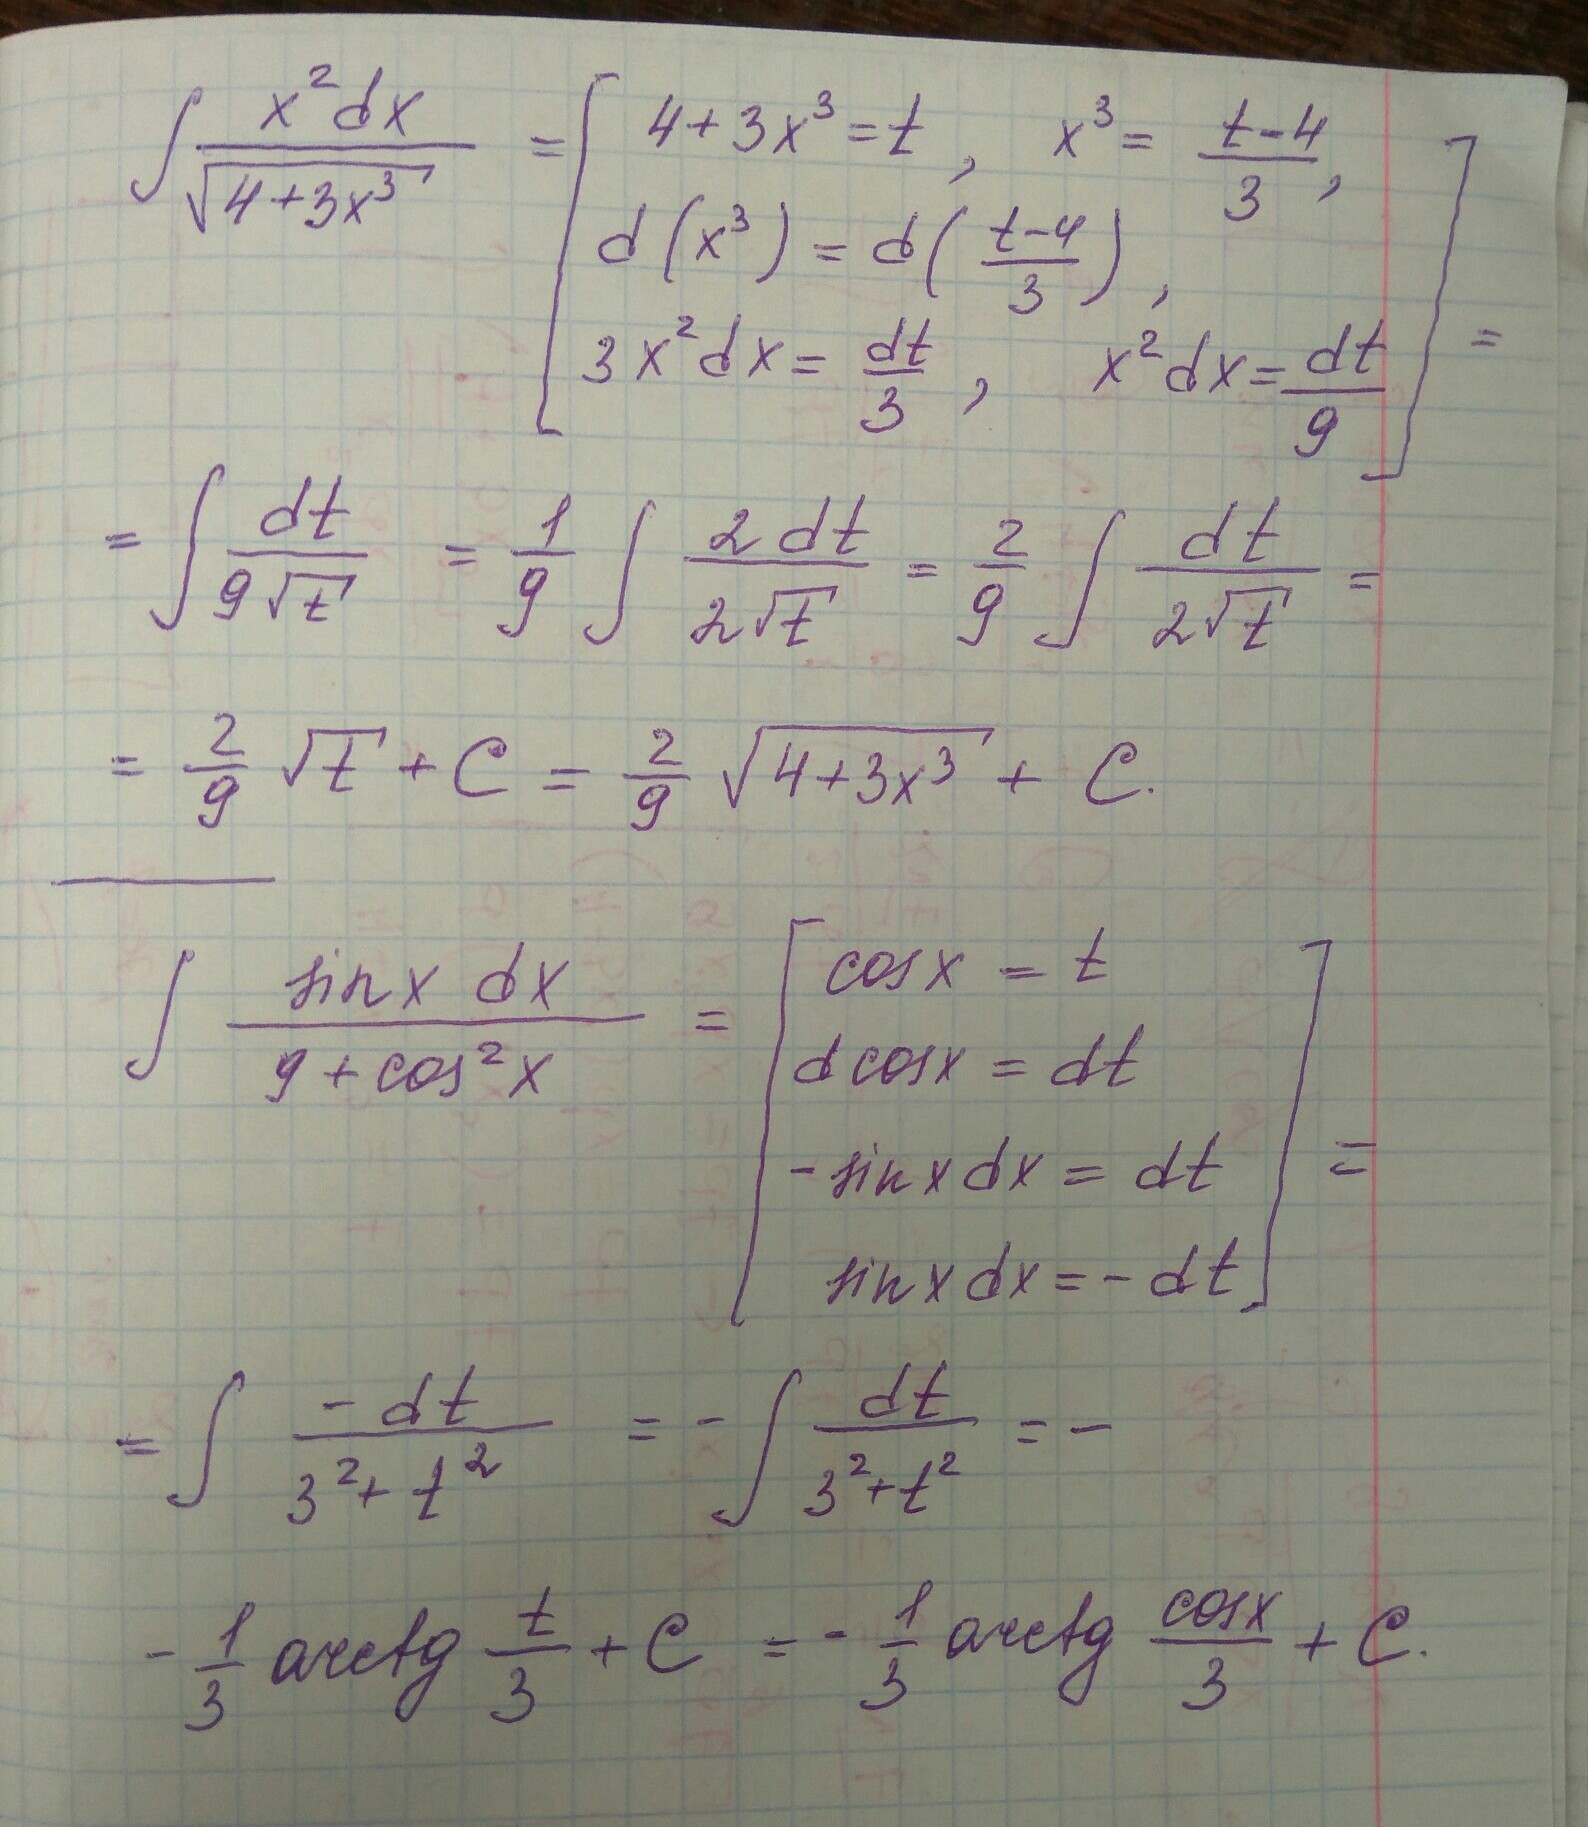 ∫ x²dx / √(4+3x³) = [ 4+3x³ = t, x³ = (t-4)/3,
d(x³) = d((t-4)/3),
3x²dx = dt/3, x²dx = dt/9 ] =
= ∫ dt/(9√t) = 1/9 ∫ 2dt/(2√t) = 2/9 ∫ dt/(2√t) =
= 2/9 √t + C = 2/9 √(4+3x³) + C.
∫ sinx dx / (9+cos²x) = [ cosx = t
dcosx = dt
-sinxdx = dt
sinxdx = -dt ] =
= ∫ -dt/(3²+t²) = - ∫ dt/(3²+t²) = -
- 1/3 arctg t/3 + C = - 1/3 arctg cosx/3 + C.